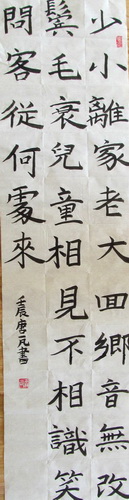 少小離家老大回鄉音無改
鬢毛衰兒童相見不相識笑
問客從何處來
壬辰唐元書